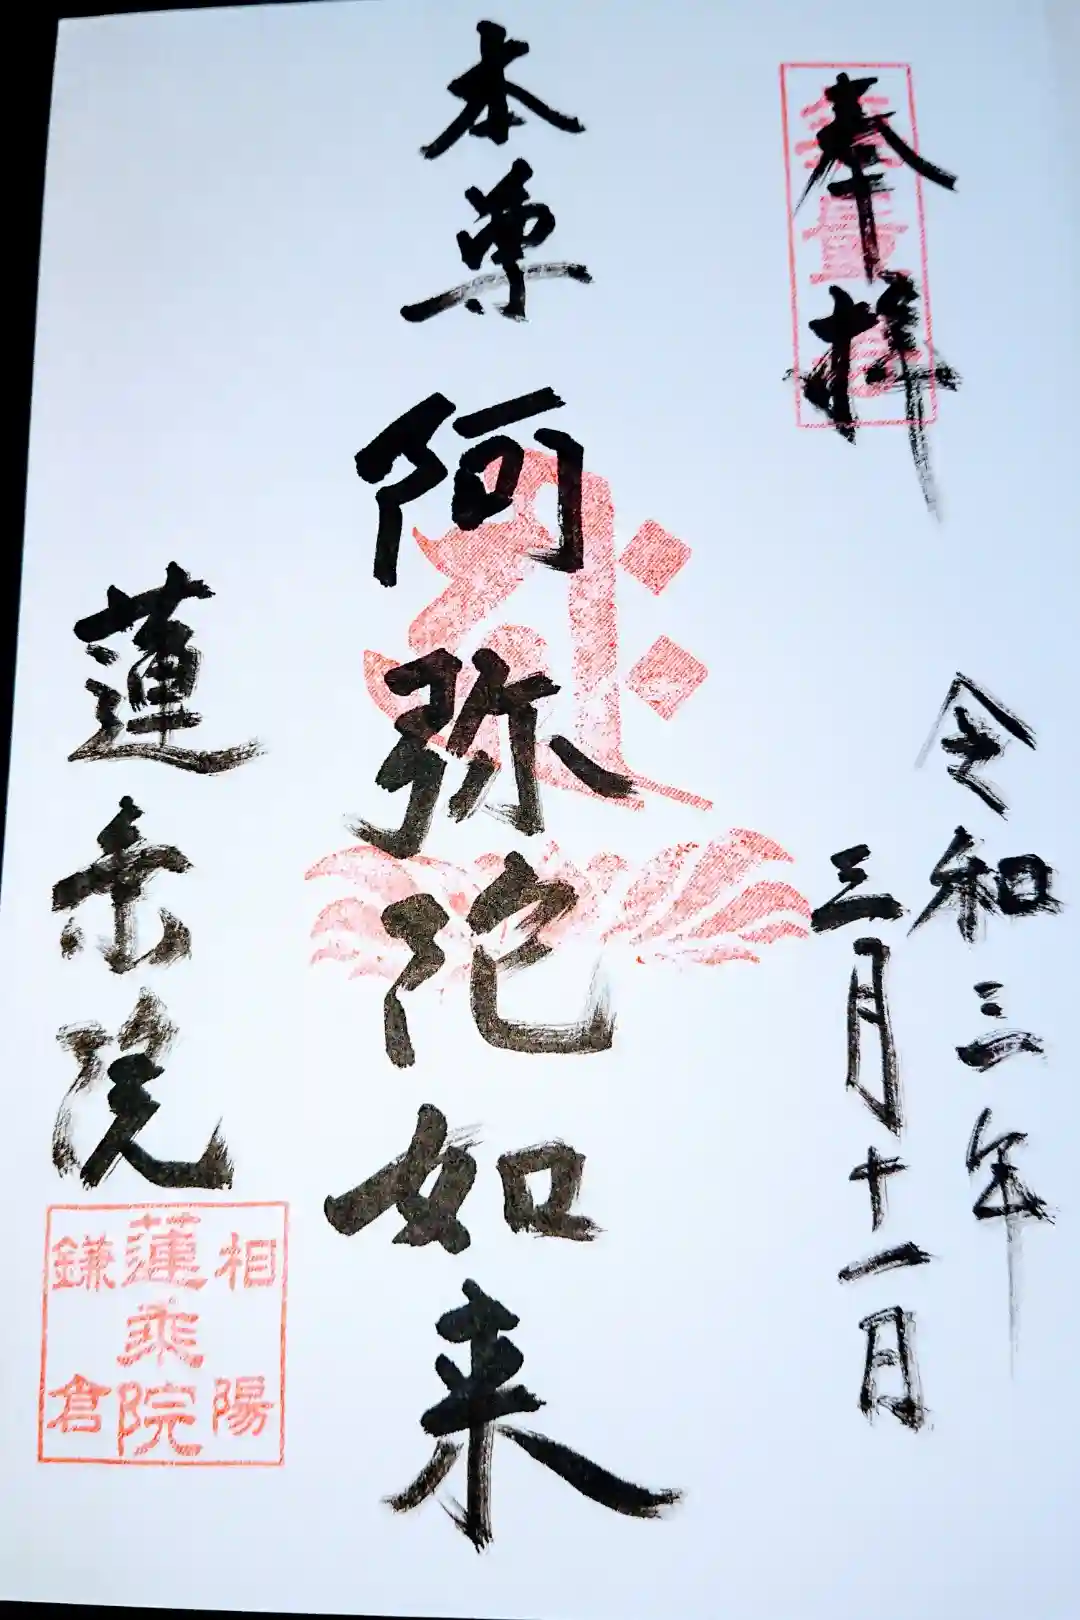 奉拝
無量壽
令和三年
三月十一日
本尊 阿弥陀如来
蓮乗院
相陽
蓮乗院
鎌倉